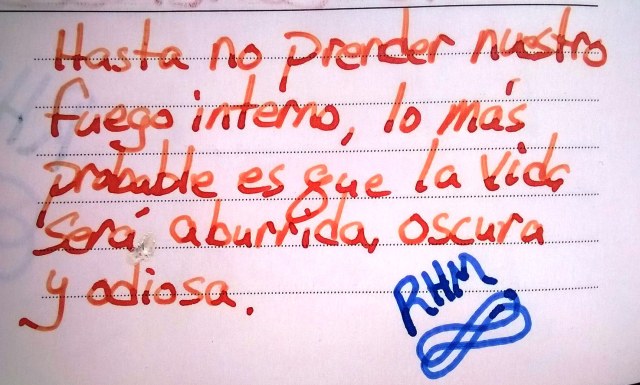 Hasta no prender nuestro
fuego interno, lo más
probable es que la vida
será aburrida, oscura
y odiosa.
RHM